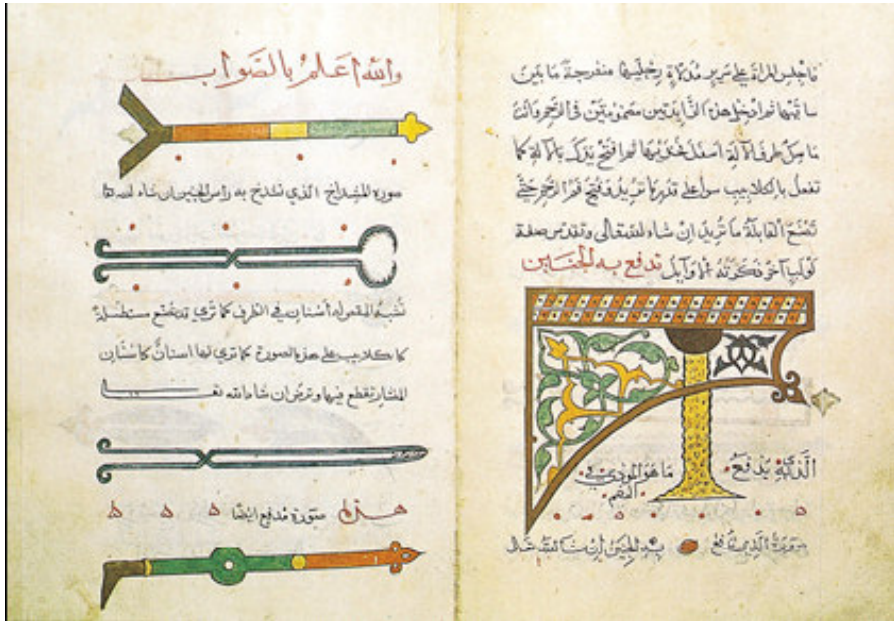 فاجلس المراة على سرير مدلاة رجليها منفرجة ما بين
ساقيها ثم ادخل هذه الزايدتين مضمومتين في الرحم وانت
ماسك طرف الآلة اسفل فخذيها ثم افتح يدك بالآلة كما
تفعل بالكلاليب سوا على قدر ما تريد وفتح فم الرحم حتى
تصنع القابلة ما تريد ان شاء الله تعالى وتقدس صفة
لولب آخر ذكرته الأوايل تدفع به الجنين
الذي يدفع ما هو المودي في
الفم
الذي تدفع به الجنين إن شاء الله تعالى
والله اعلم بالصواب
صورة المشداخ الذي تشدخ به راس الجنين ان شاء الله
تشبه المقص له أسنان في الطرف كما ترى قد تصنع مستطيلة
كالكلاليب على هذه الصورة كما ترى لها اسنان كاسنان
المنشار يقطع فيها وترض ان شاء الله
هذه صورة مدفع ايضا